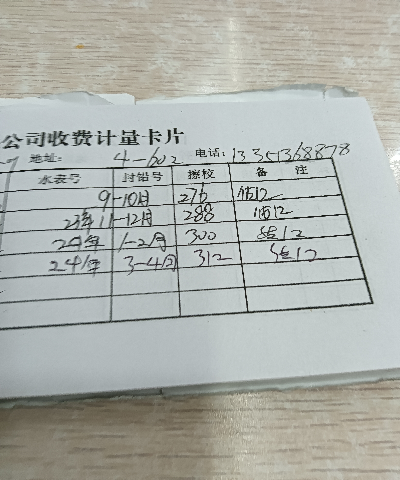 公司收费计量卡片
地址: 4-602 电话: 13351368878
水表号 封铅号 擦校 备注
9-10月 276 估12
23年11-12月 288 估12
24年 1-2月 300 估12
24年 3-4月 312 估12